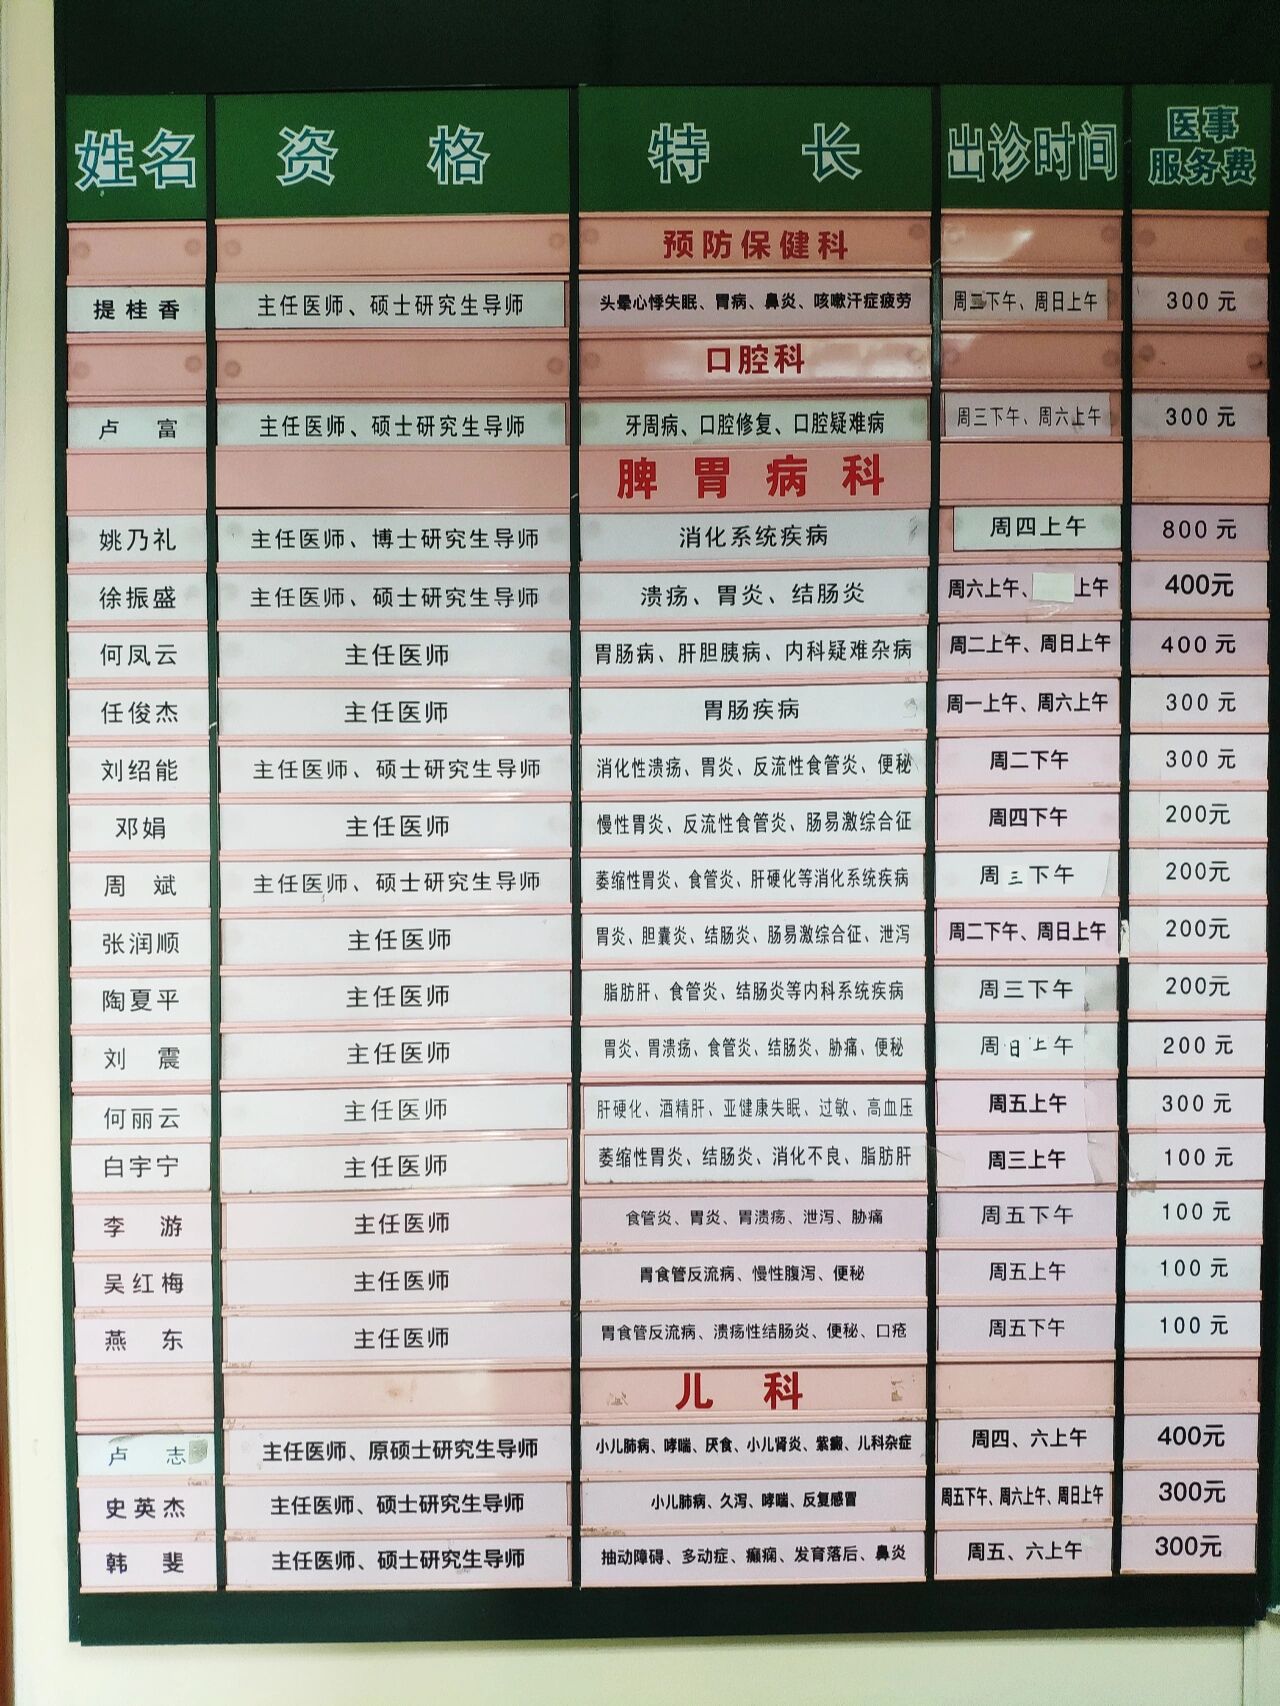 姓名 资格 特长 出诊时间 医事服务费
预防保健科
提桂香 主任医师、硕士研究生导师 头晕心悸失眠、胃病、鼻炎、咳嗽汗症疲劳 周二下午、周日上午 300元
口腔科
卢富 主任医师、硕士研究生导师 牙周病、口腔修复、口腔疑难病 周三下午、周六上午 300元
脾胃病科
姚乃礼 主任医师、博士研究生导师 消化系统疾病 周四上午 800元
徐振盛 主任医师、硕士研究生导师 溃疡、胃炎、结肠炎 周六上午、 上午 400元
何凤云 主任医师 胃肠病、肝胆胰病、内科疑难杂病 周二上午、周日上午 400元
任俊杰 主任医师 胃肠疾病 周一上午、周六上午 300元
刘绍能 主任医师、硕士研究生导师 消化性溃疡、胃炎、反流性食管炎、便秘 周二下午 300元
邓娟 主任医师 慢性胃炎、反流性食管炎、肠易激综合征 周四下午 200元
周斌 主任医师、硕士研究生导师 萎缩性胃炎、食管炎、肝硬化等消化系统疾病 周三下午 200元
张润顺 主任医师 胃炎、胆囊炎、结肠炎、肠易激综合征、泄泻 周二下午、周日上午 200元
陶夏平 主任医师 脂肪肝、食管炎、结肠炎等内科系统疾病 周三下午 200元
刘震 主任医师 胃炎、胃溃疡、食管炎、结肠炎、胁痛、便秘 周日上午 200元
何丽云 主任医师 肝硬化、酒精肝、亚健康失眠、过敏、高血压 周五上午 300元
白宇宁 主任医师 萎缩性胃炎、结肠炎、消化不良、脂肪肝 周三上午 100元
李游 主任医师 食管炎、胃炎、胃溃疡、泄泻、胁痛 周五下午 100元
吴红梅 主任医师 胃食管反流病、慢性腹泻、便秘 周五上午 100元
燕东 主任医师 胃食管反流病、溃疡性结肠炎、便秘、口疮 周五下午 100元
儿科
卢志 主任医师、原硕士研究生导师 小儿肺病、哮喘、厌食、小儿肾炎、紫癜、儿科杂症 周四、六上午 400元
史英杰 主任医师、硕士研究生导师 小儿肺病、久泻、哮喘、反复感冒 周五下午、周六上午、周日上午 300元
韩斐 主任医师、硕士研究生导师 抽动障碍、多动症、癫痫、发育落后、鼻炎 周五、六上午 300元